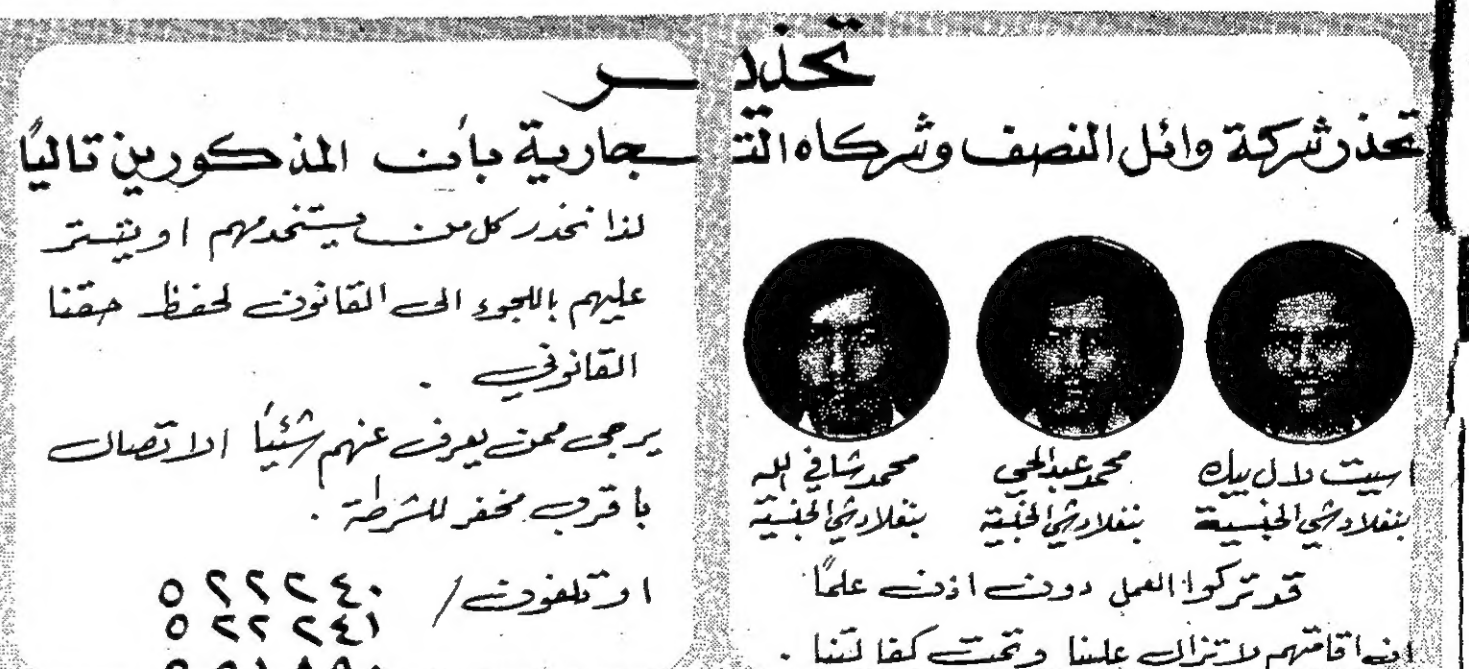 تحذير
تحذر شركة وائل النصف وشركاه التجارية بأن المذكورين تاليًا
اسيت دلال بيك
بنغلادشي الجنسية
محمد عبدالحي
بنغلادشي الجنسية
محمد شافي الله
بنغلادشي الجنسية
قد تركوا العمل دون اذن علمًا
ان اقامتهم لا تزال علينا وتحت كفالتنا .
لذا نحذر كل من يستخدمهم او يتستر
عليهم باللجوء الى القانون لحفظ حقنا
القانوني .
يرجى ممن يعرف عنهم شئيًا الاتصال
باقرب مخفر للشرطة .
او تلفون / ٥٢٢٢٤٠
٥٢٢٢٤١